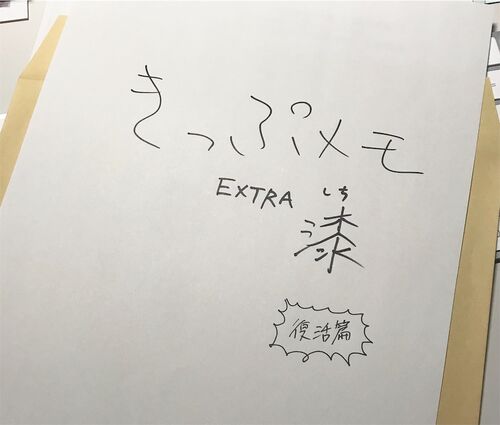 きっぷメモ
EXTRA 漆
しち
復活篇